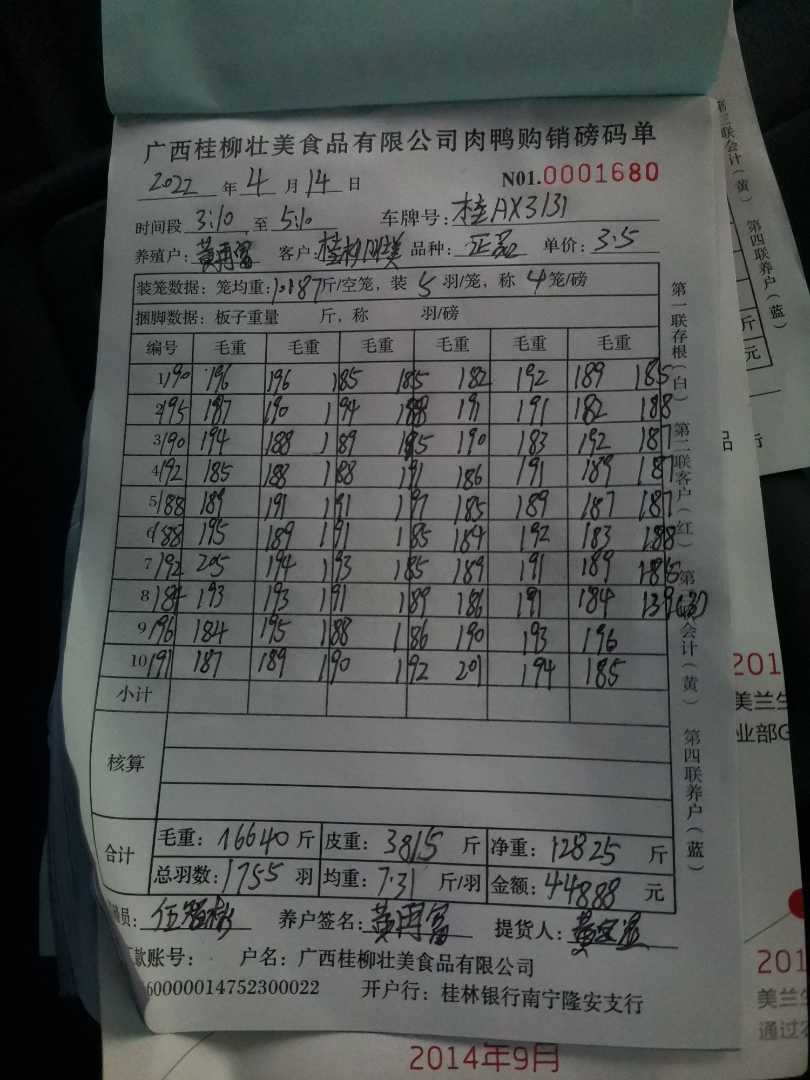 广西桂柳壮美食品有限公司肉鸭购销磅码单
2022 年 4 月 14 日 N01.0001680
时间段 3:10 至 5:10 车牌号: 桂AX3131
养殖户: 黄再富 客户: 桂柳 品种: 正品 单价: 3.5
装笼数据: 笼均重: 10.187斤/空笼, 装 5 羽/笼, 称 4 笼/磅
捆脚数据: 板子重量 斤, 称 羽/磅
编号 毛重 毛重 毛重 毛重 毛重 毛重
1 190 196 196 185 185 182 192 189 185
2 195 187 190 194 188 191 191 182 188
3 190 194 188 189 185 190 183 192 187
4 192 185 188 188 191 186 191 189 187
5 188 189 191 191 197 185 189 187 187
6 188 195 189 191 185 184 192 183 188
7 192 205 194 193 185 189 191 189 185
8 184 193 193 191 189 186 191 184 139(3)
9 196 184 195 188 186 190 193 196
10 191 187 189 190 192 201 194 185
小计
核算
合计 毛重: 16640 斤 皮重: 3815 斤 净重: 12825 斤
总羽数: 1755 羽 均重: 7.31 斤/羽 金额: 44888 元
员: 养户签名: 黄再富 提货人:
款账号: 户名: 广西桂柳壮美食品有限公司
60000014752300022 开户行: 桂林银行南宁隆安支行
第一联存根(白) 第二联客户(红) 第三联会计(黄) 第四联养户(蓝)
第三联会计(黄) 第四联养户(蓝)
斤
元
品
行
201
美兰生
业部G
201
美兰生
通过
2014年9月